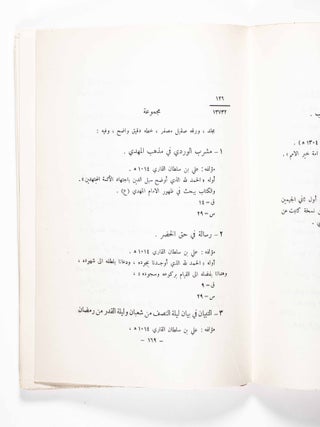 ١٢٦
١٣٧٣٢
مجموعة
مجلد ، ورقه صقيل مصفر ، خطه دقيق واضح ، وفيه :
١ – مشرب الوردي في مذهب المهدي .
مؤلفه : علي بن سلطان القاري ١٠١٤ ه .
أوله «الحمد لله الذي أوضح سبل الدين باجتهاد الأئمة المجتهدين».
والكتاب يبحث في ظهور الامام المهدي (ع) .
ق – ١٤
س – ٢٩
٢ – رسالة في حق الخضر .
مؤلفه : علي بن سلطان القاري ١٠١٤ ه .
أوله «الحمد لله الذي أوجدنا بجوده ، ودعانا بلطفه الى شهوده ،
وهدانا بفضله الى القيام بركوعه وسجوده» .
ق – ٩
س – ٢٩
٣ – التبيان في بيان ليلة النصف من شعبان وليلة القدر من رمضان
مؤلفه : علي بن سلطان القاري ١٠١٤ ه .
– ١٦٩ –
١٣٠٤ ه) .
خير الامم» .
أول ثاني الجيمين
نسخة كتبت عن